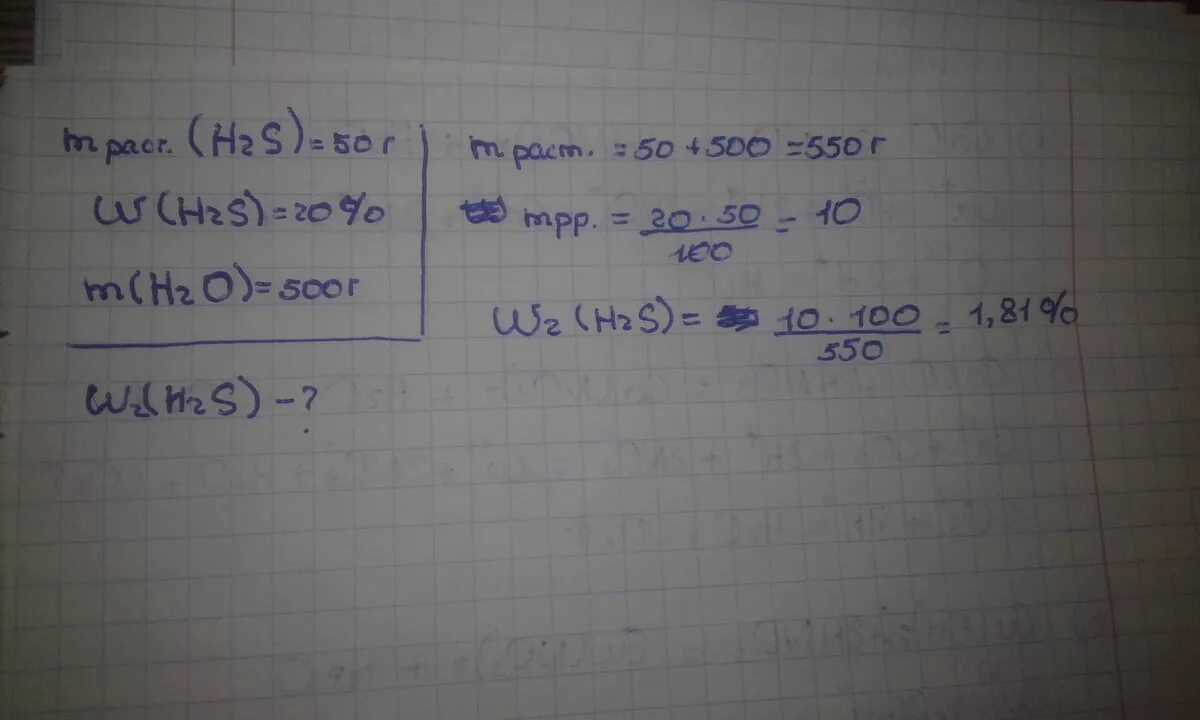 m раст. (H2S) = 50 г
W(H2S) = 20%
m(H2O) = 500г
W2(H2S) - ?
m раст. = 50 + 500 = 550 г
m рр. = 20 · 50 / 100 = 10
W2 (H2S) = 10 · 100 / 550 = 1,81%